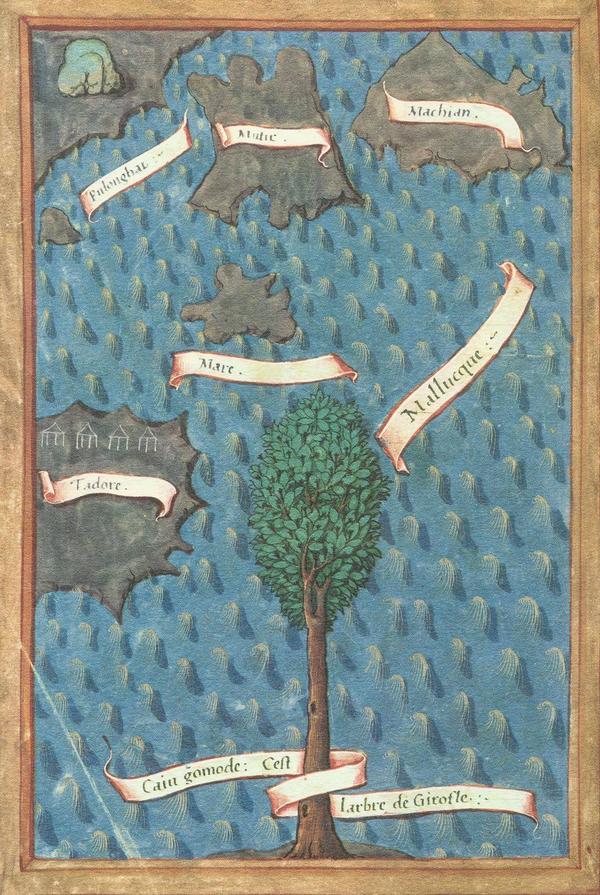 Pulongbat :~
Mutir .
Machian .
Mare .
Mallucque :~
Tadore .
Caiu gomode : Cest
larbre de Girofle .:~